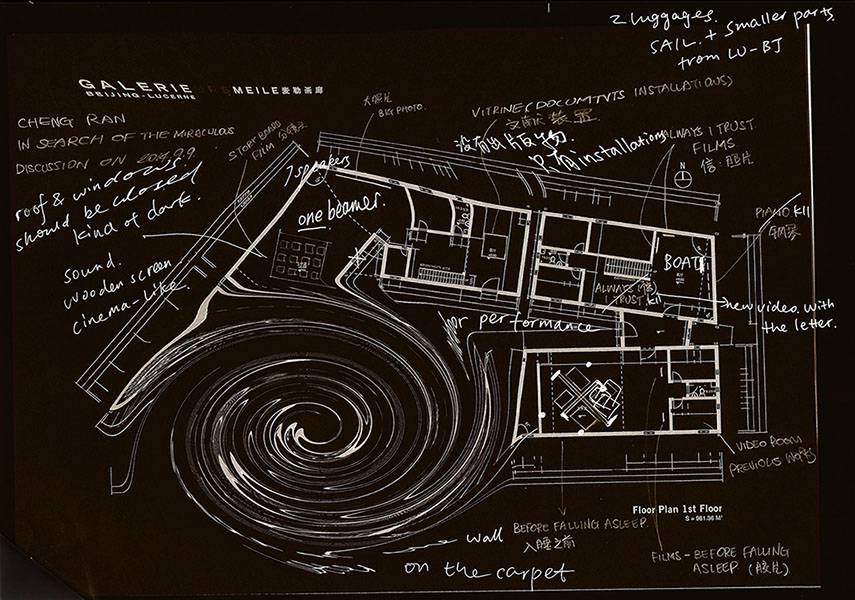 2 luggages.
SAIL. + smaller parts
from LU-BJ
GALERIE URS MEILE 麦勒画廊
BEIJING-LUCERNE
CHENG RAN
IN SEARCH OF THE MIRACULOUS
DISCUSSION ON 2014.9.9.
roof & windows
should be closed
kind of dark.
sound.
wooden screen
cinema-like
STORYBOARD
FILM
大照片
BIG PHOTO.
7 speakers
one beamer.
VITRINE (DOCUMENTS INSTALLATIONS)
文献装置
没有出版物
只有installation
ALWAYS I TRUST
FILMS
信:照片
N
PIANO K11
钢琴
BOAT
ALWAYS
I TRUST K11
new video with
the letter.
for performance
VIDEO ROOM
PREVIOUS WORKS
Floor Plan 1st Floor
S = 961.36 M²
wall
BEFORE FALLING ASLEEP.
入睡之前
on the carpet
FILMS - BEFORE FALLING
ASLEEP (胶片)